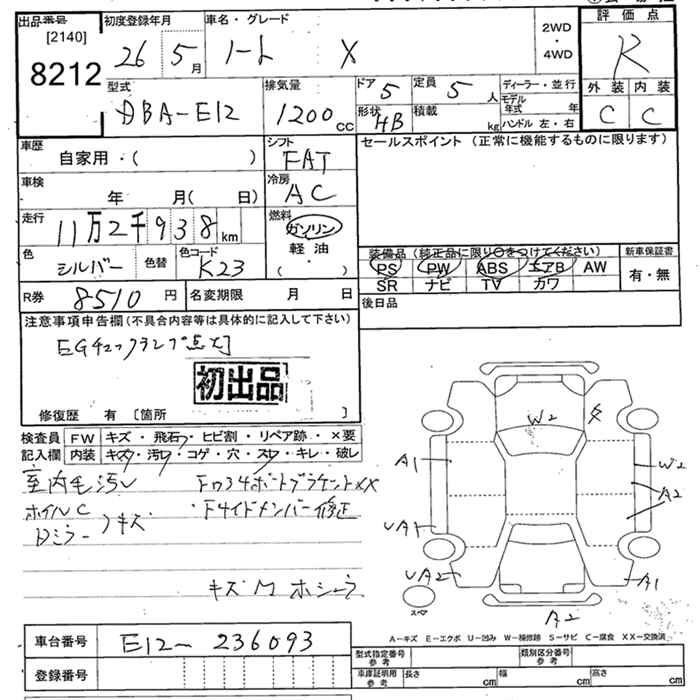 出品番号 初度登録年月 車名・グレード 2WD・4WD 評価点
[2140]
8212
26年 5月 ノート X R
型式 排気量 ドア 5 定員 5人 ディーラー・並行 外装 内装
DBA-E12 1200cc 形状 HB 積載 kg モデル年式 年 C C
ハンドル 左・右
車歴 シフト セールスポイント (正常に機能するものに限ります)
自家用・( ) FAT
車検 冷房
年 月( 日) AC
走行 燃料
11万2千938km ガソリン
軽油
( ・ )
色 シルバー 色替 色コード K23
装備品 (純正品に限り○をつけてください) 新車保証書
PS PW ABS エアB AW 有・無
SR ナビ TV カワ
R券 8510円 名変期限 月 日 後日品
注意事項申告欄 (不具合内容等は具体的に記入して下さい)
EGチェックランプ点灯
初出品
修復歴 有 [箇所 ]
検査員 FW キズ・飛石・ヒビ割・リペア跡・×要
記入欄 内装 キズ・汚レ・コゲ・穴・スレ・キレ・破レ
室内毛汚レ
ホイルC
Dミラー キズ
キズM ホシュウ
W2
A1 W2
A2
UA1
UA2 A1
スペア A2
A-キズ E-エクボ U-凹み W-補修跡 S-サビ C-腐食 XX-交換済
車台番号 E12-236093
登録番号
型式指定番号 参考 類別区分番号 参考
車庫証明用 参考 長さ cm 幅 cm 高さ cm